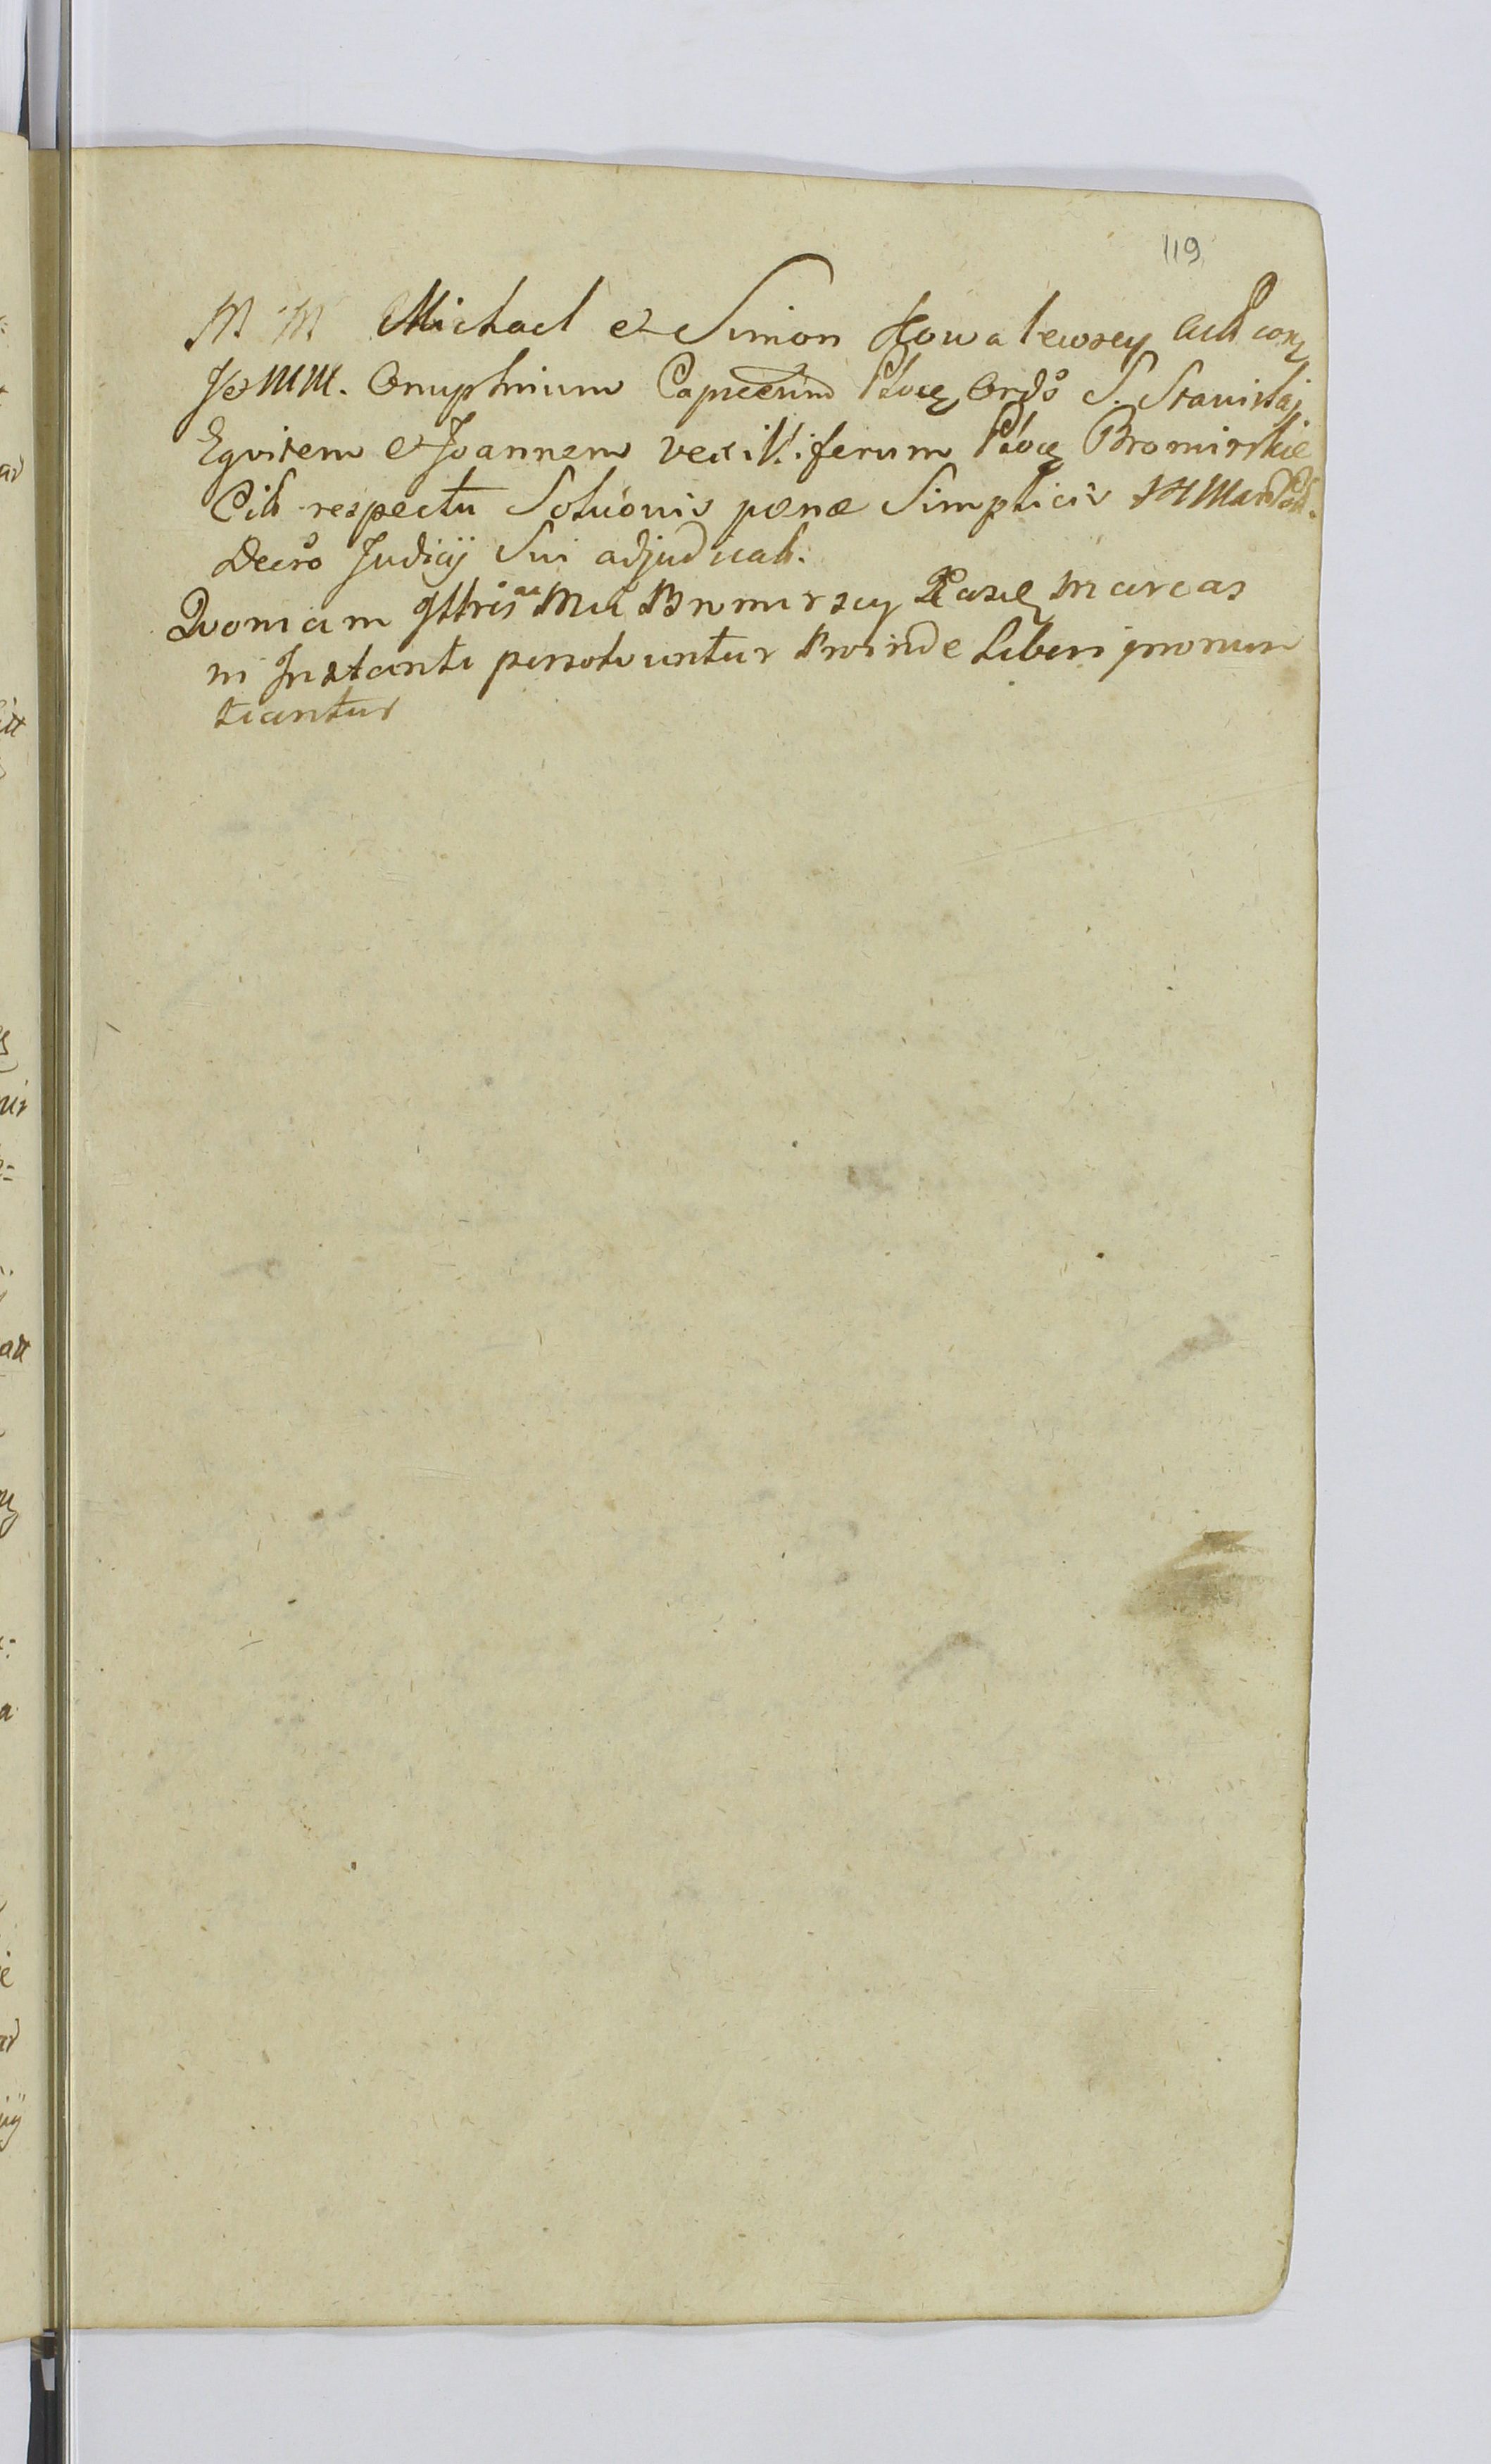 119
M M Michael et Simon Kowalewscy Actt con
JoMM. Onuphrium Płoce Ordo S. Stanislaj
Equitem et Joannem vexilliferum Płoce Bromirskie
Citt respectu Solucionis pænæ Simplicis
Decro Judicij Sui adjudicatt.
Quoniam Bromirscy marcas
in Instanti persolvuntur Proinde Liberi pronun
tiantur